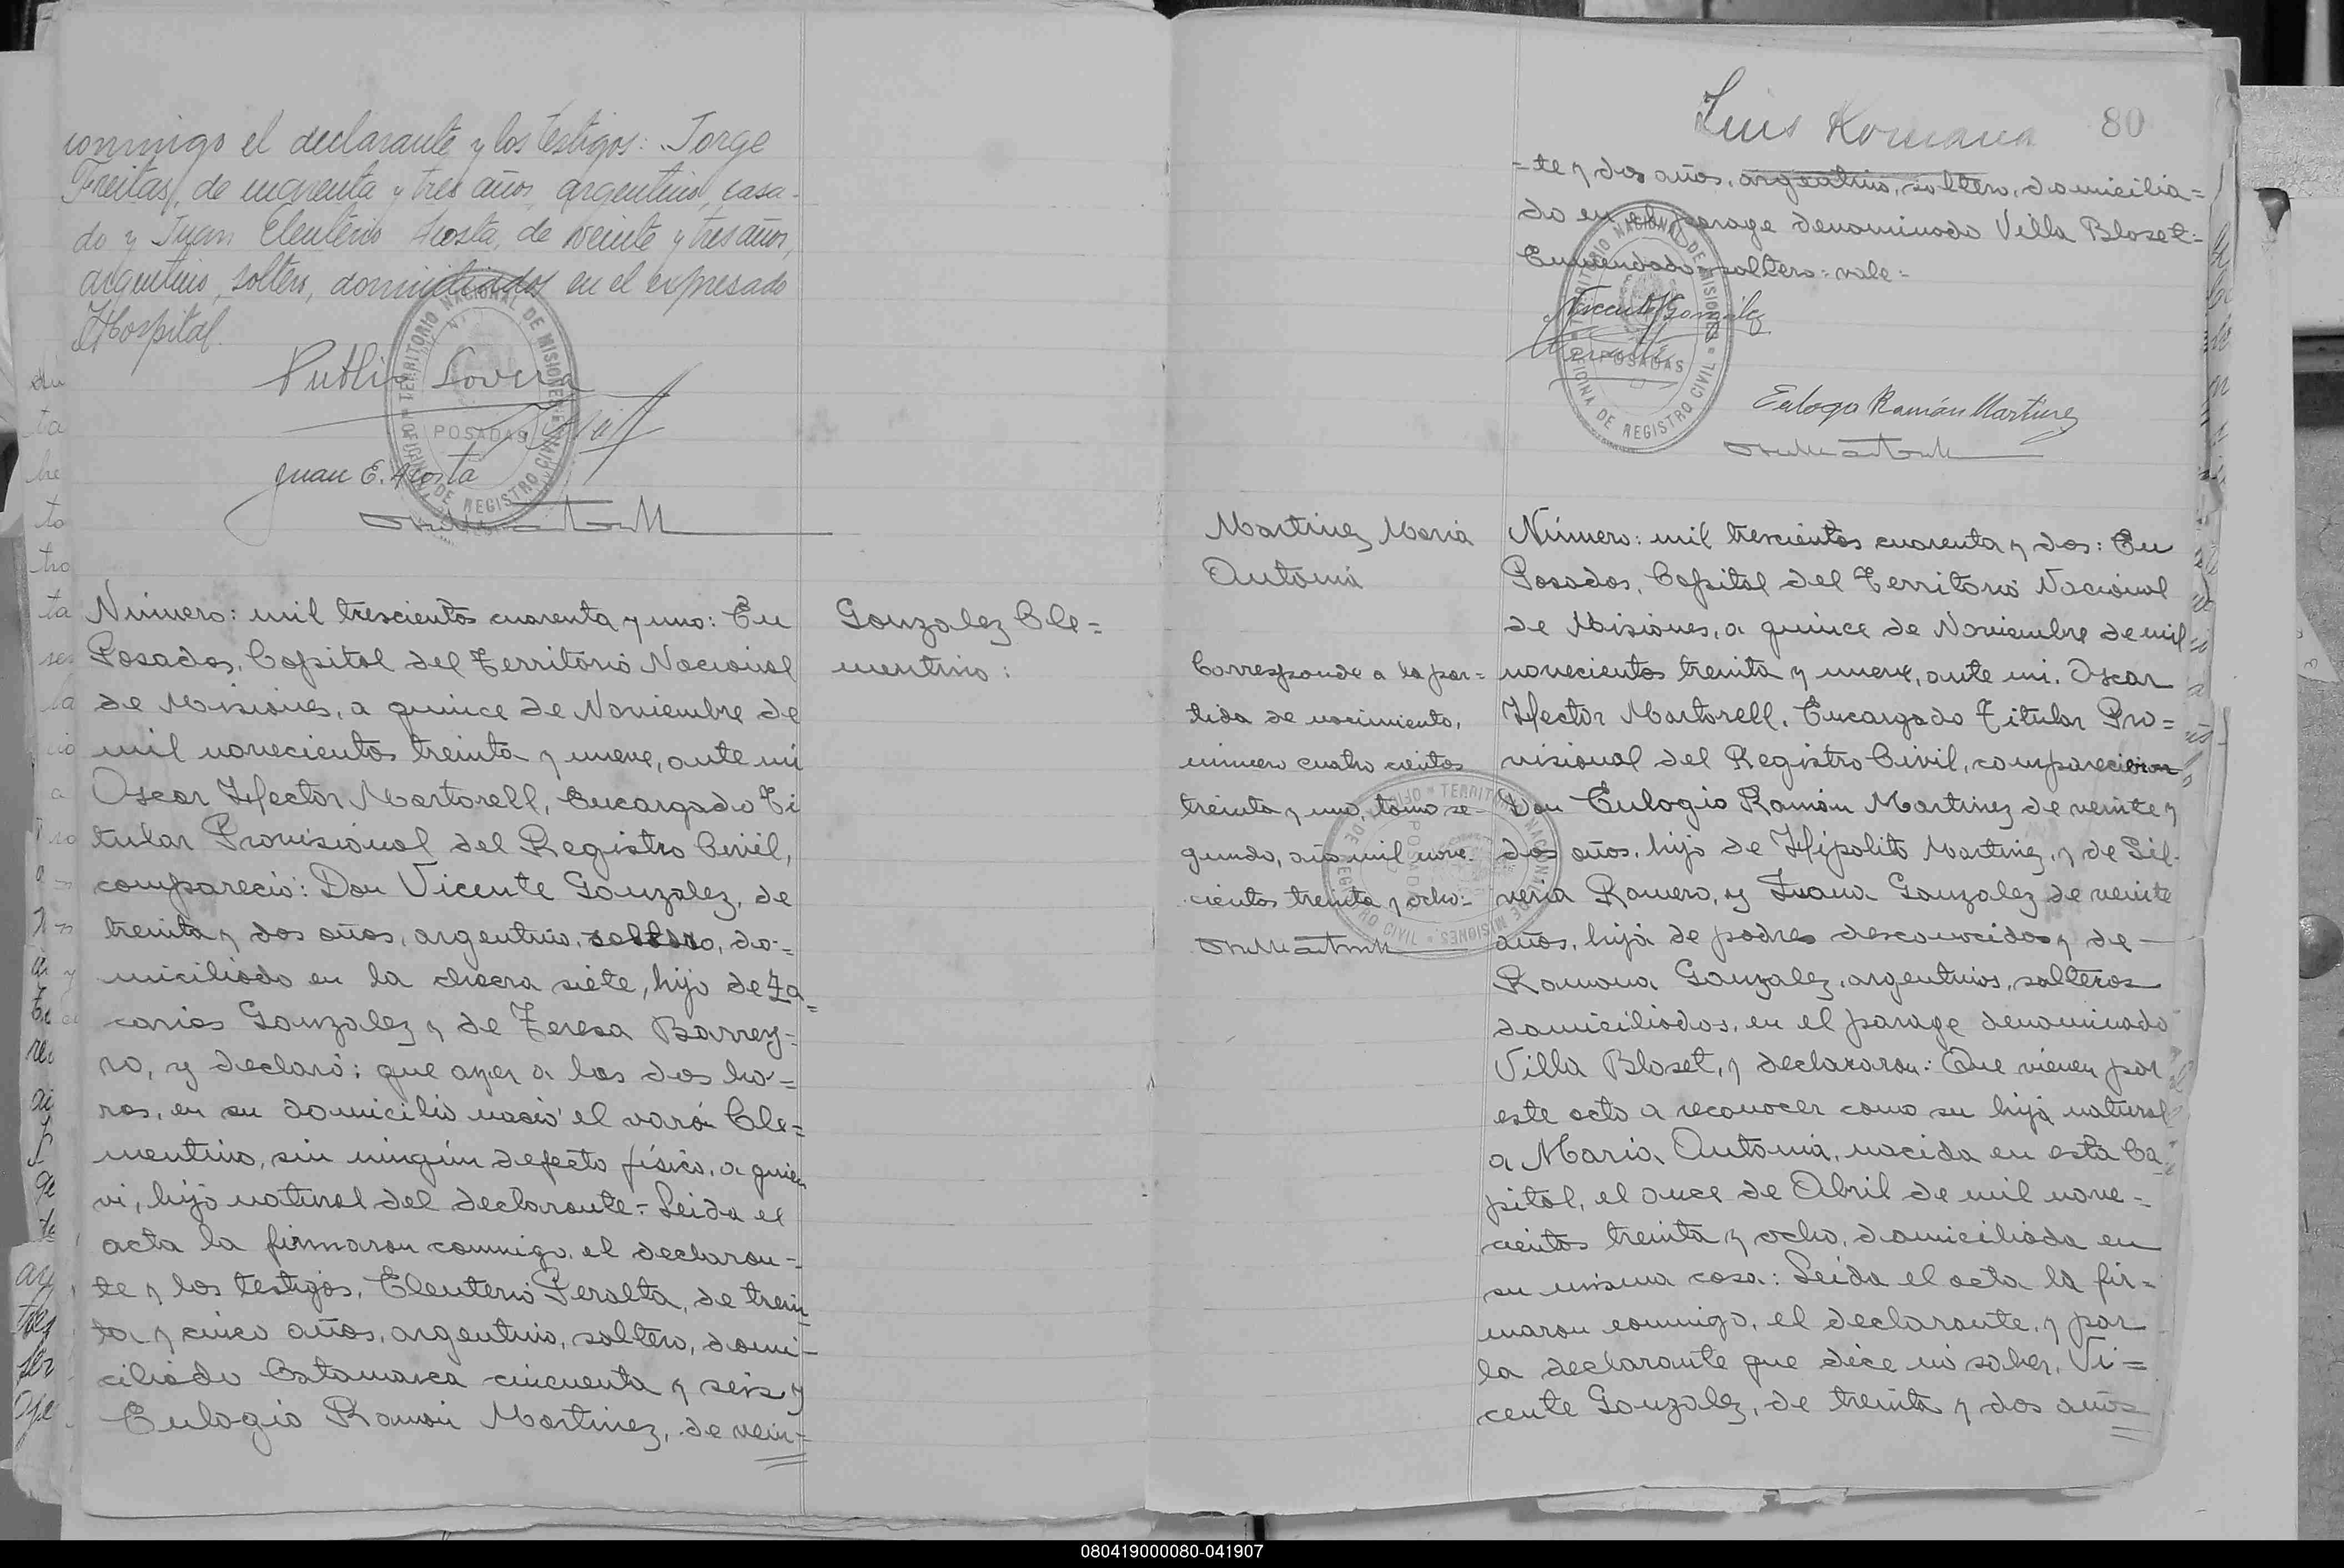 conmigo el declarante y los testigos: Jorge
Freitas, de cuarenta y tres años, argentino, casa-
do y Juan Eleuterio Acosta, de veinte y tres años,
argentino, soltero, domiciliados en el expresado
Hospital.
Publio Lovera
Juan E. Acosta
TERRITORIO NACIONAL DE MISIONES
POSADAS
OFICINA DE REGISTRO CIVIL
Número: mil trescientos cuarenta y uno: En
Posadas, Capital del Territorio Nacional
de Misiones, a quince de Noviembre de
mil novecientos treinta y nueve, ante mi
Oscar Hector Martorell, Encargado Ti
tular Provisional del Registro Civil,
compareció: Don Vicente Gonzalez, de
treinta y dos años, argentino, soltero, do-
miciliado en la chacra siete, hijo de Za=
carias Gonzalez y de Teresa Barrey-
ro, y declaró: que ayer a las dos ho=
ras, en su domicilio nació el varón Cle=
mentino, sin ningún defecto físico, a quien
vi, hijo natural del declarante = Leida el
acta la firmaron conmigo, el declaran-
te y los testigos, Eleuterio Peralta, de trein
ta y cinco años, argentino, soltero, domi-
ciliado Catamarca cincuenta y seis y
Eulogio Ramón Martinez, de vein=
Gonzalez Cle=
mentino:
Luis Romana
80
=te y dos años, argentino, soltero, domicilia=
do en el parage denominado Villa Bloset=
Enmendado=soltero=vale=
Vicente Gonzalez
Eulogo Ramón Martinez
TERRITORIO NACIONAL DE MISIONES
POSADAS
OFICINA DE REGISTRO CIVIL
Martinez Maria
Antonia
Corresponde a la par=
tida de nacimiento,
número cuatro cientos
treinta y uno, tomo se-
gundo, año mil nove-
cientos treinta y ocho=
TERRITORIO NACIONAL DE MISIONES
POSADAS
OFICINA DE REGISTRO CIVIL
Número: mil trescientos cuarenta y dos: En
Posadas, Capital del Territorio Nacional
de Misiones, a quince de Noviembre de mil
novecientos treinta y nueve, ante mi, Oscar
Hector Martorell, Encargado Titular Pro=
visional del Registro Civil, comparecieron
Don Eulogio Ramón Martinez de veinte y
dos años, hijo de Hipolito Martinez, y de Sil-
veria Romero, y Juana Gonzalez de veinte
años, hija de padres desconocidos y de
Romona Gonzalez, argentinos, solteros
domiciliados, en el parage denominado
Villa Bloset, y declararon: Que vienen por
este acto a reconocer como su hija natural
a Maria Antonia, nacida en esta Ca
pital, el once de Abril de mil nove=
cientos treinta y ocho, domiciliada en
su misma casa: Leida el acta la fir=
maron conmigo, el declarante, y por
la declarante que dice no saber, Vi=
cente Gonzalez, de treinta y dos años
080419000080-041907